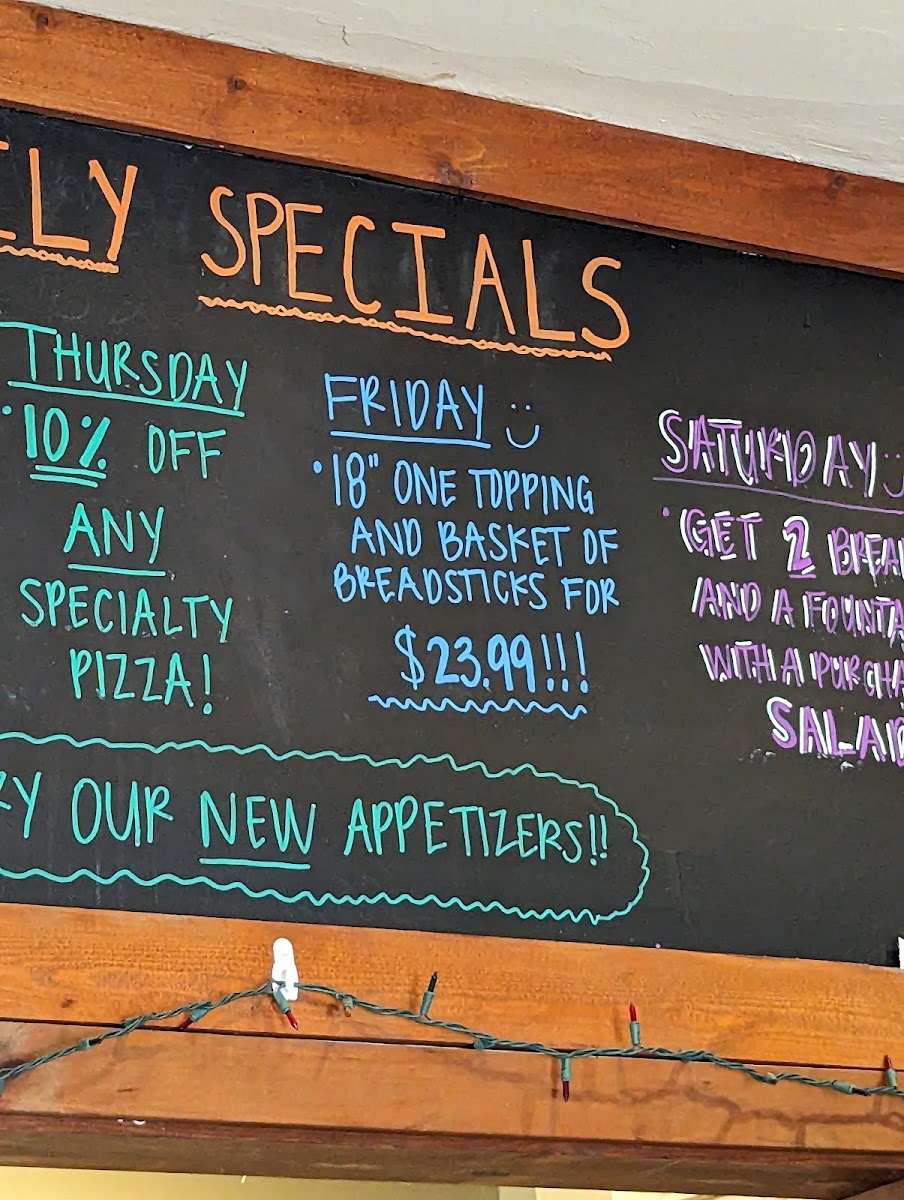 LY SPECIALS
THURSDAY
• 10% OFF
ANY
SPECIALTY
PIZZA!
FRIDAY
• 18" ONE TOPPING
AND BASKET OF
BREADSTICKS FOR
$23.99!!!
SATURDAY
• GET 2 BREA
AND A FOUNTA
WITH A PURCHA
SALAD
RY OUR NEW APPETIZERS!!